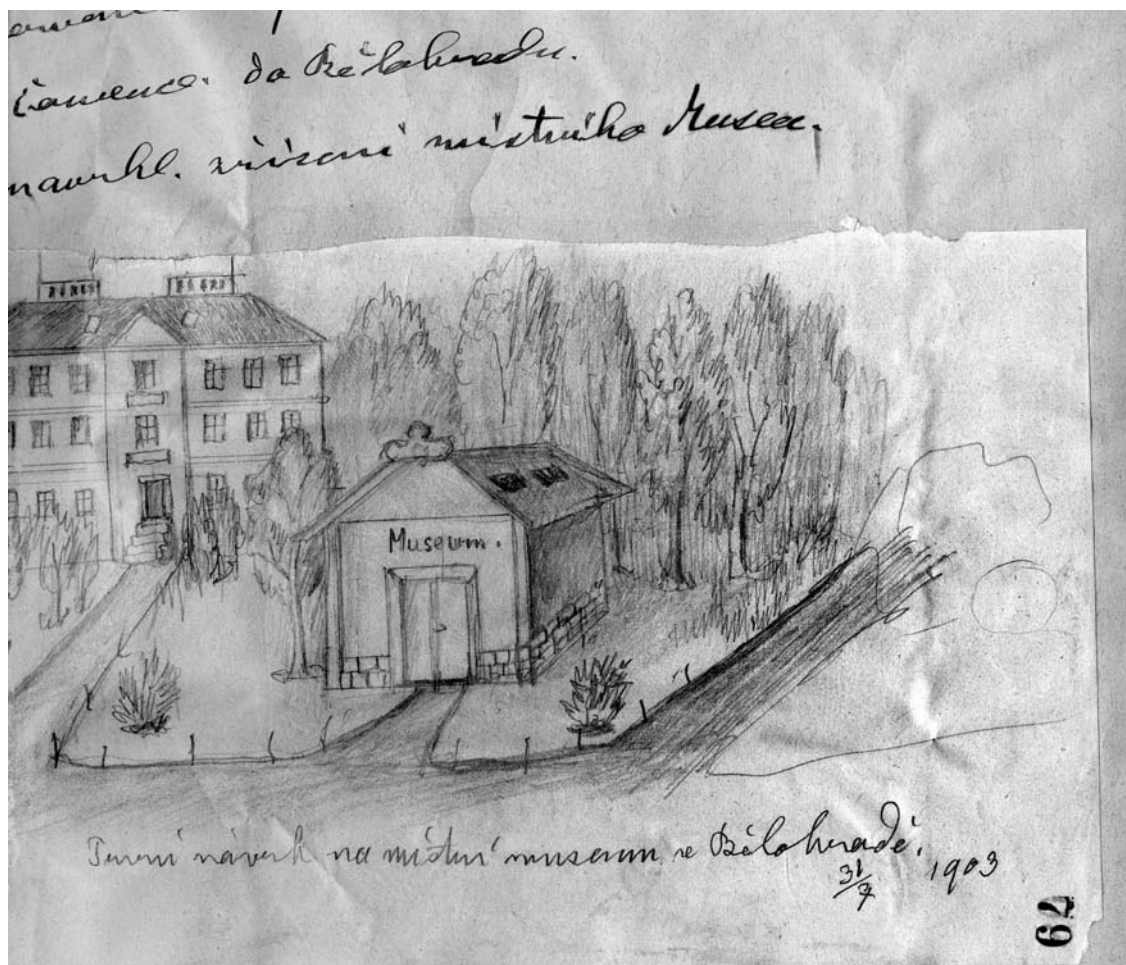 do Bělohradu.
navrhl. zřízení místního Musea.
Museum.
První návrh na místní museum v Bělohradě.
31/7 1903
79